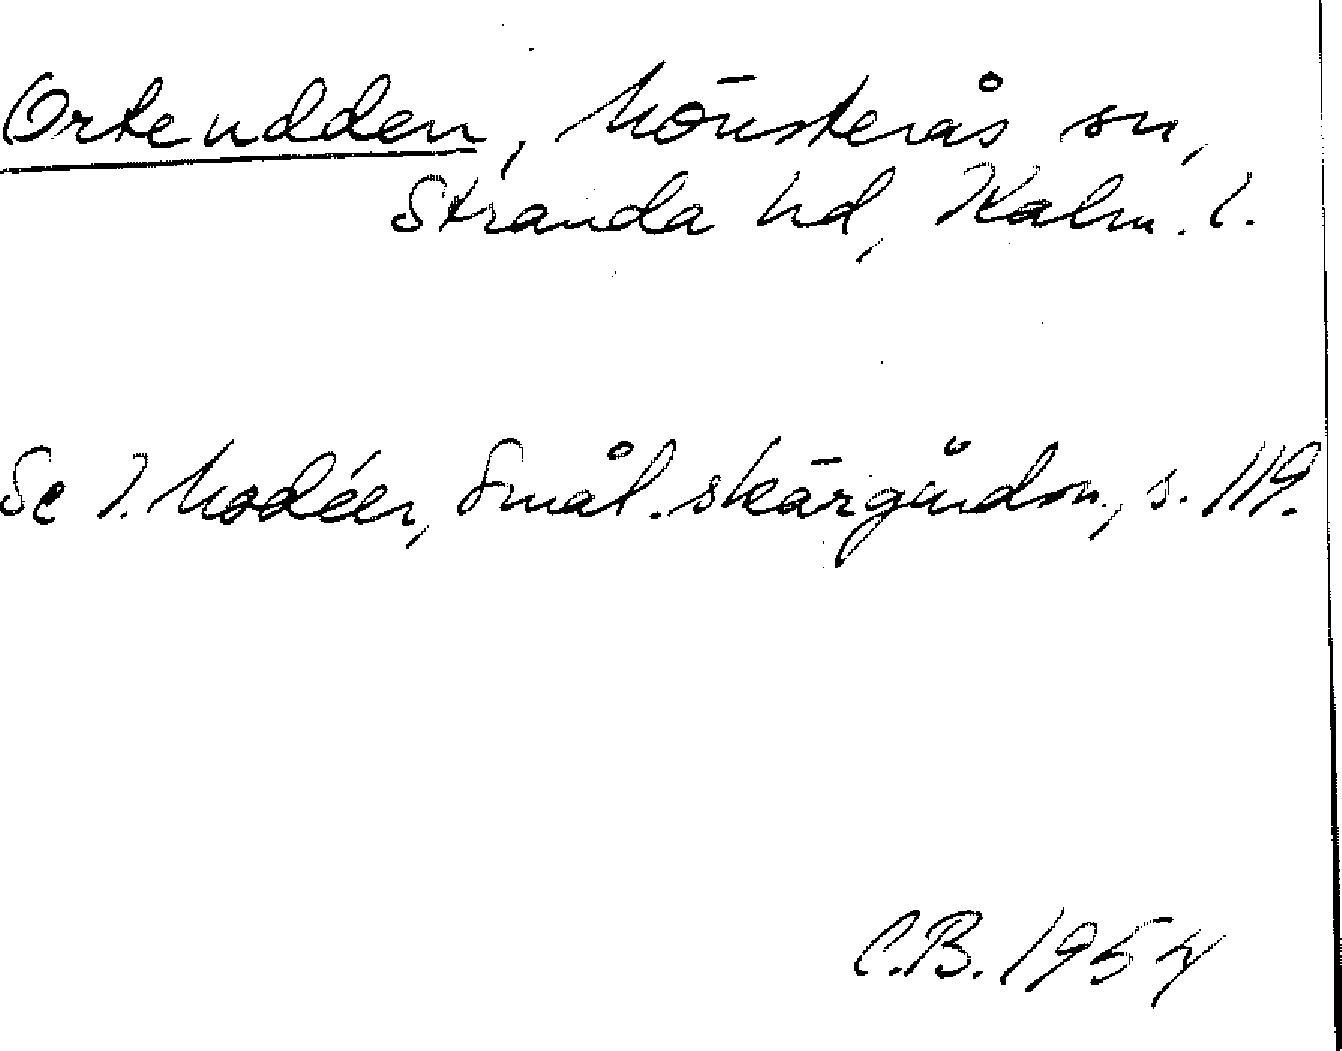 Ortendden, Mönsterås sn,
Stranda hd, Kalm. l.
Se I. Modéer, Smål. skärgårdsn., s. 119.
C.B. 1954